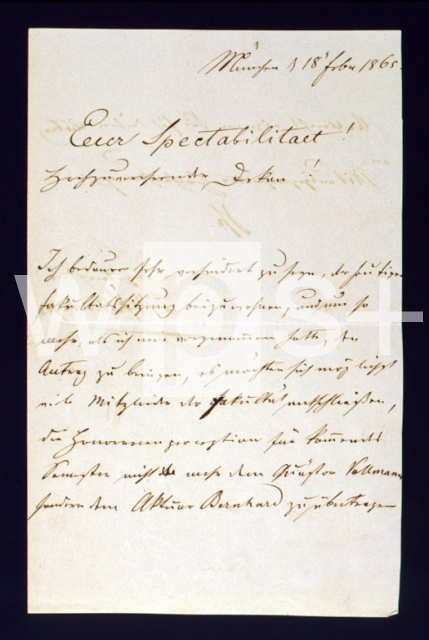 München d 18 Febr 1865.
Euer Spectabilitaet!
Hochzuverehrender Dekan!
Ich bedaure sehr verhindert zu seyn, der heutigen
Fakultätssitzung beizuwohnen, und um so
mehr, als ich mir vorgenommen hatte, den
Antrag zu bringen, es möchten sich möglichst
viele Mitglieder der Fakultät entschließen,
die Honorarienperception für kommendes
Semester nicht mehr dem Quästor Vollmann
sondern dem Aktuar Bernhard zu übertragen